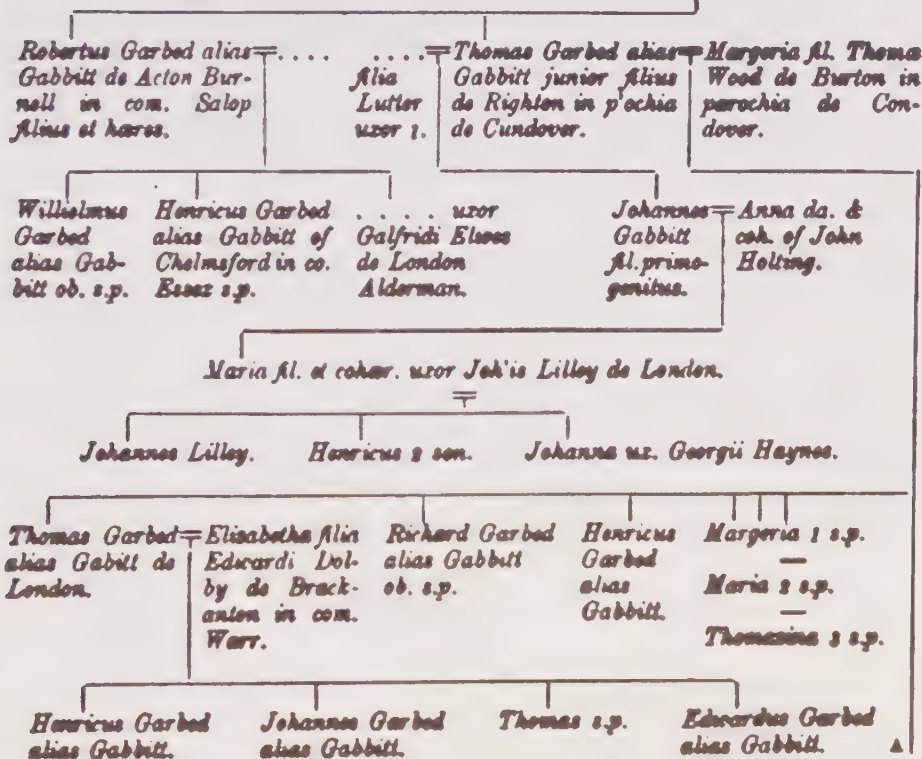 Robertus Garbed alias
Gabbitt de Acton Bur-
nell in com. Salop
filius et hæres.
. . . .
. . . .
filia
Lutter
uxor 1.
Thomas Garbed alias
Gabbitt junior filius
de Righton in p'ochia
de Cundover.
Margeria fil. Thomæ
Wood de Burton in
parochia de Con-
dover.
Willielmus
Garbed
alias Gab-
bitt ob. s.p.
Henricus Garbed
alias Gabbitt of
Chelmsford in co.
Essex s.p.
. . . . uxor
Galfridi Elwes
de London
Alderman.
Johannes
Gabbitt
fil. primo-
genitus.
Anna da. &
coh. of John
Holting.
Maria fil. et cohær. uxor Joh'is Lilley de London.
Johannes Lilley.
Henricus 2 son.
Johanna ux. Georgii Haynes.
Thomas Garbed
alias Gabitt de
London.
Elisabetha filia
Edwardi Dol-
by de Brack-
anton in com.
Warr.
Richard Garbed
alias Gabbitt
ob. s.p.
Henricus
Garbed
alias
Gabbitt.
Margeria 1 s.p.
Maria 2 s.p.
Thomasina 3 s.p.
Henricus Garbed
alias Gabbitt.
Johannes Garbed
alias Gabbitt.
Thomas s.p.
Edwardus Garbed
alias Gabbitt.
A